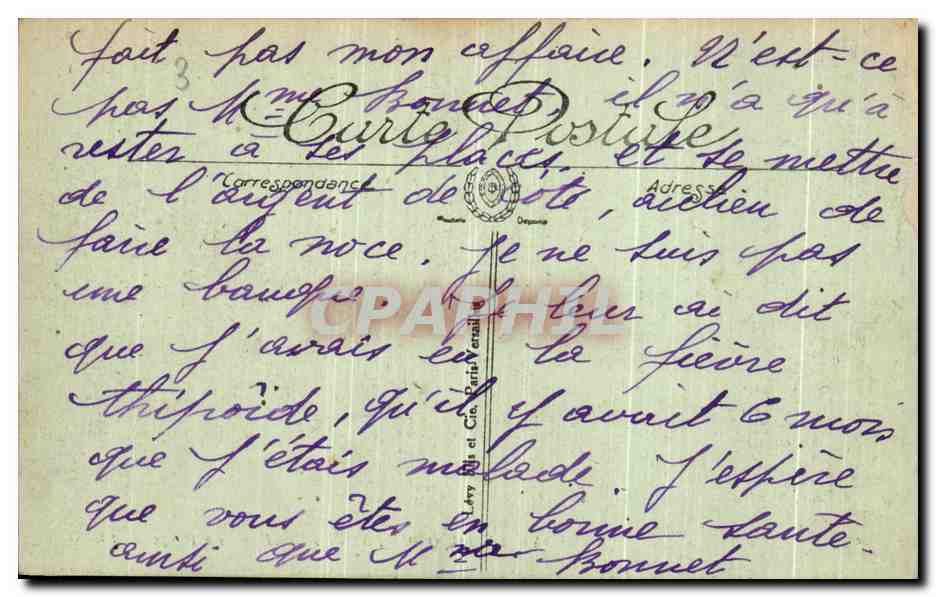 fait pas mon affaire. N'est-ce
3
pas Mme Bonnet, il n'a qu'à
Carte Postale
rester à ses places, et se mettre
Correspondance
Adresse
de l'argent de côté, aulieu de
faire la noce. Je ne suis pas
une banque. Je leur ai dit
CPAPHIL
que j'avais eu la fièvre
thipoïde, qu'il y avait 6 mois
que j'étais malade. J'espère
que vous êtes en bonne santé
ainsi que Mme Bonnet
Lévy Fils et Cie, Paris-Versailles